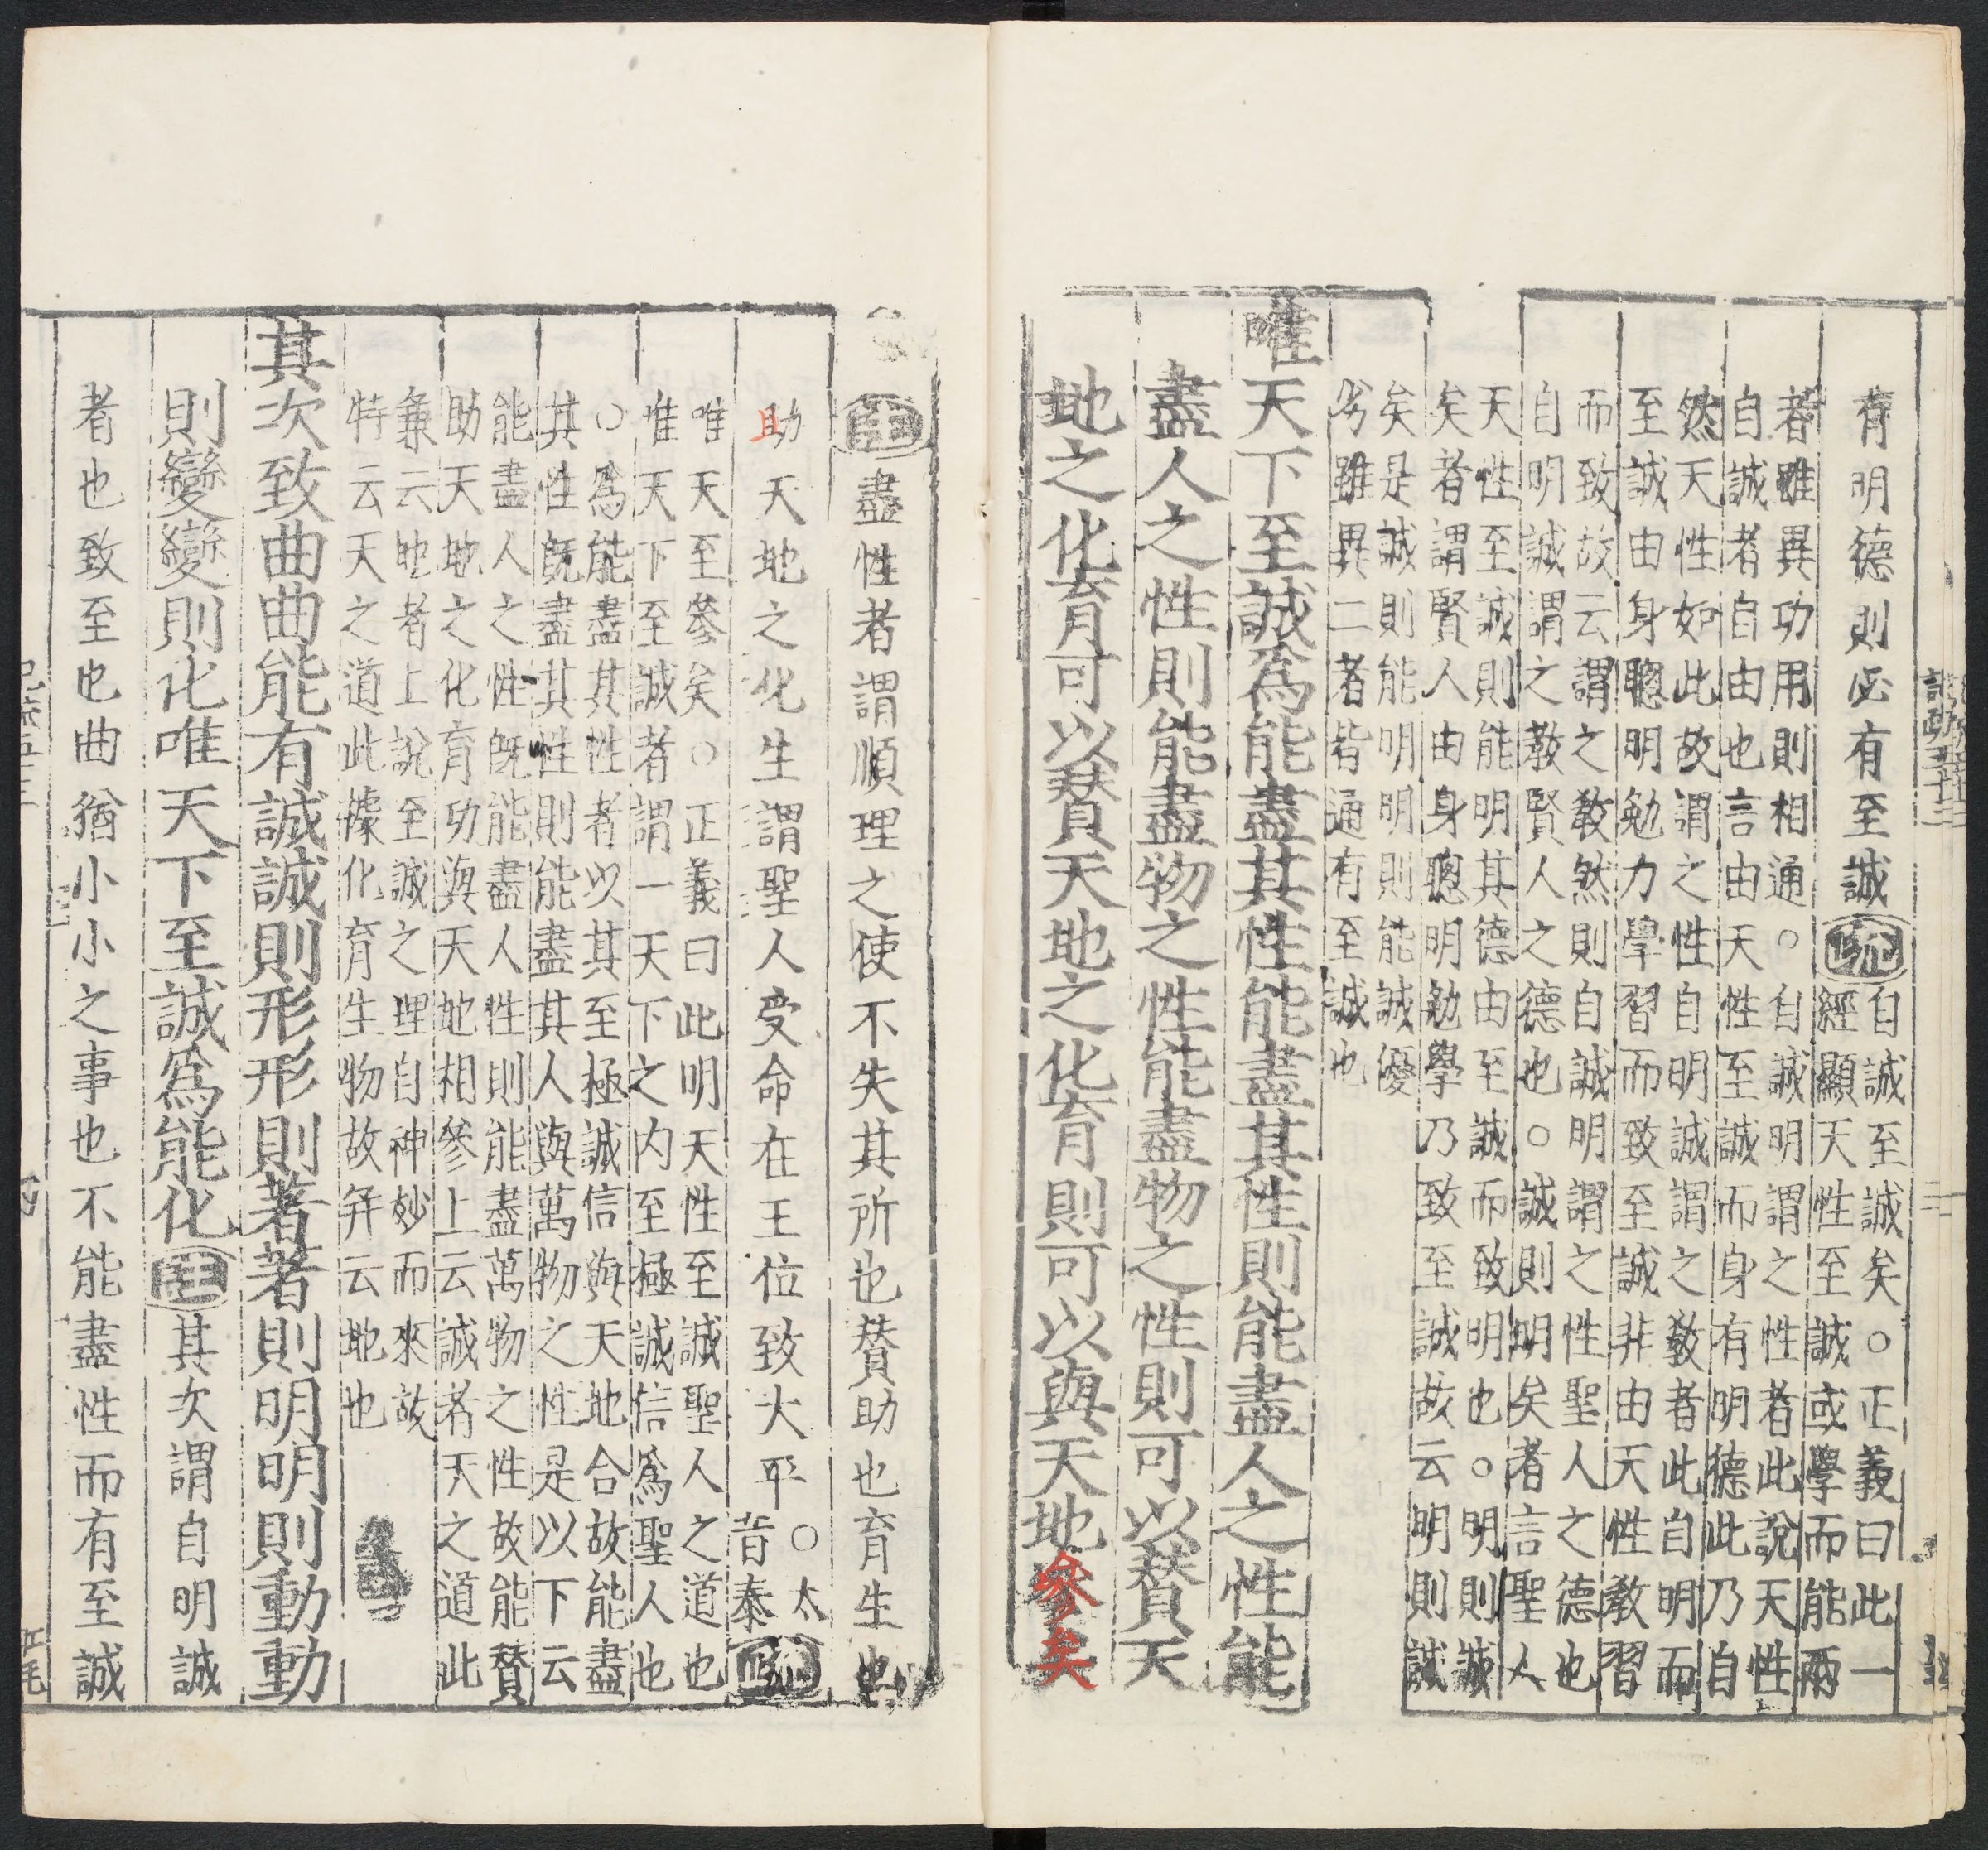 有明德則必有至誠疏
自誠至誠矣○正義曰此一
經顯天性至誠或學而能兩
者雖異功用則相通○自誠明謂之性者此說天性
自誠者自由也言由天性至誠而身有明德此乃自
然天性如此故謂之性自明誠謂之敎者此自明而
至誠由身聰明勉力學習而致至誠非由天性敎習
而致故云謂之敎然則自誠明謂之性聖人之德也
自明誠謂之敎賢人之德也○誠則明矣者言聖人
天性至誠則能明其德由至誠而致明也○明則誠
矣者謂賢人由身聰明勉學乃致至誠故云明則誠
矣是誠則能明明則能誠優
劣雖異二者皆通有至誠也
唯天下至誠爲能盡其性能盡其性則能盡人之性能
盡人之性則能盡物之性能盡物之性則可以賛天
地之化育可以賛天地之化育則可以與天地參矣
注盡性者謂順理之使不失其所也賛助也育生也
助天地之化生謂聖人受命在王位致大平○太
音泰疏
唯天至參矣○正義曰此明天性至誠聖人之道也
唯天下至誠者謂一天下之内至極誠信爲聖人也
○爲能盡其性者以其至極誠信與天地合故能盡
其性旣盡其性則能盡其人與萬物之性是以下云
能盡人之性旣能盡人性則能盡萬物之性故能賛
助天地之化育功與天地相參上云誠者天之道此
兼云地者上說至誠之理自神妙而來故
特云天之道此據化育生物故并云地也
其次致曲曲能有誠誠則形形則著著則明明則動動
則變變則化唯天下至誠爲能化注其次謂自明誠
者也致至也曲猶小小之事也不能盡性而有至誠